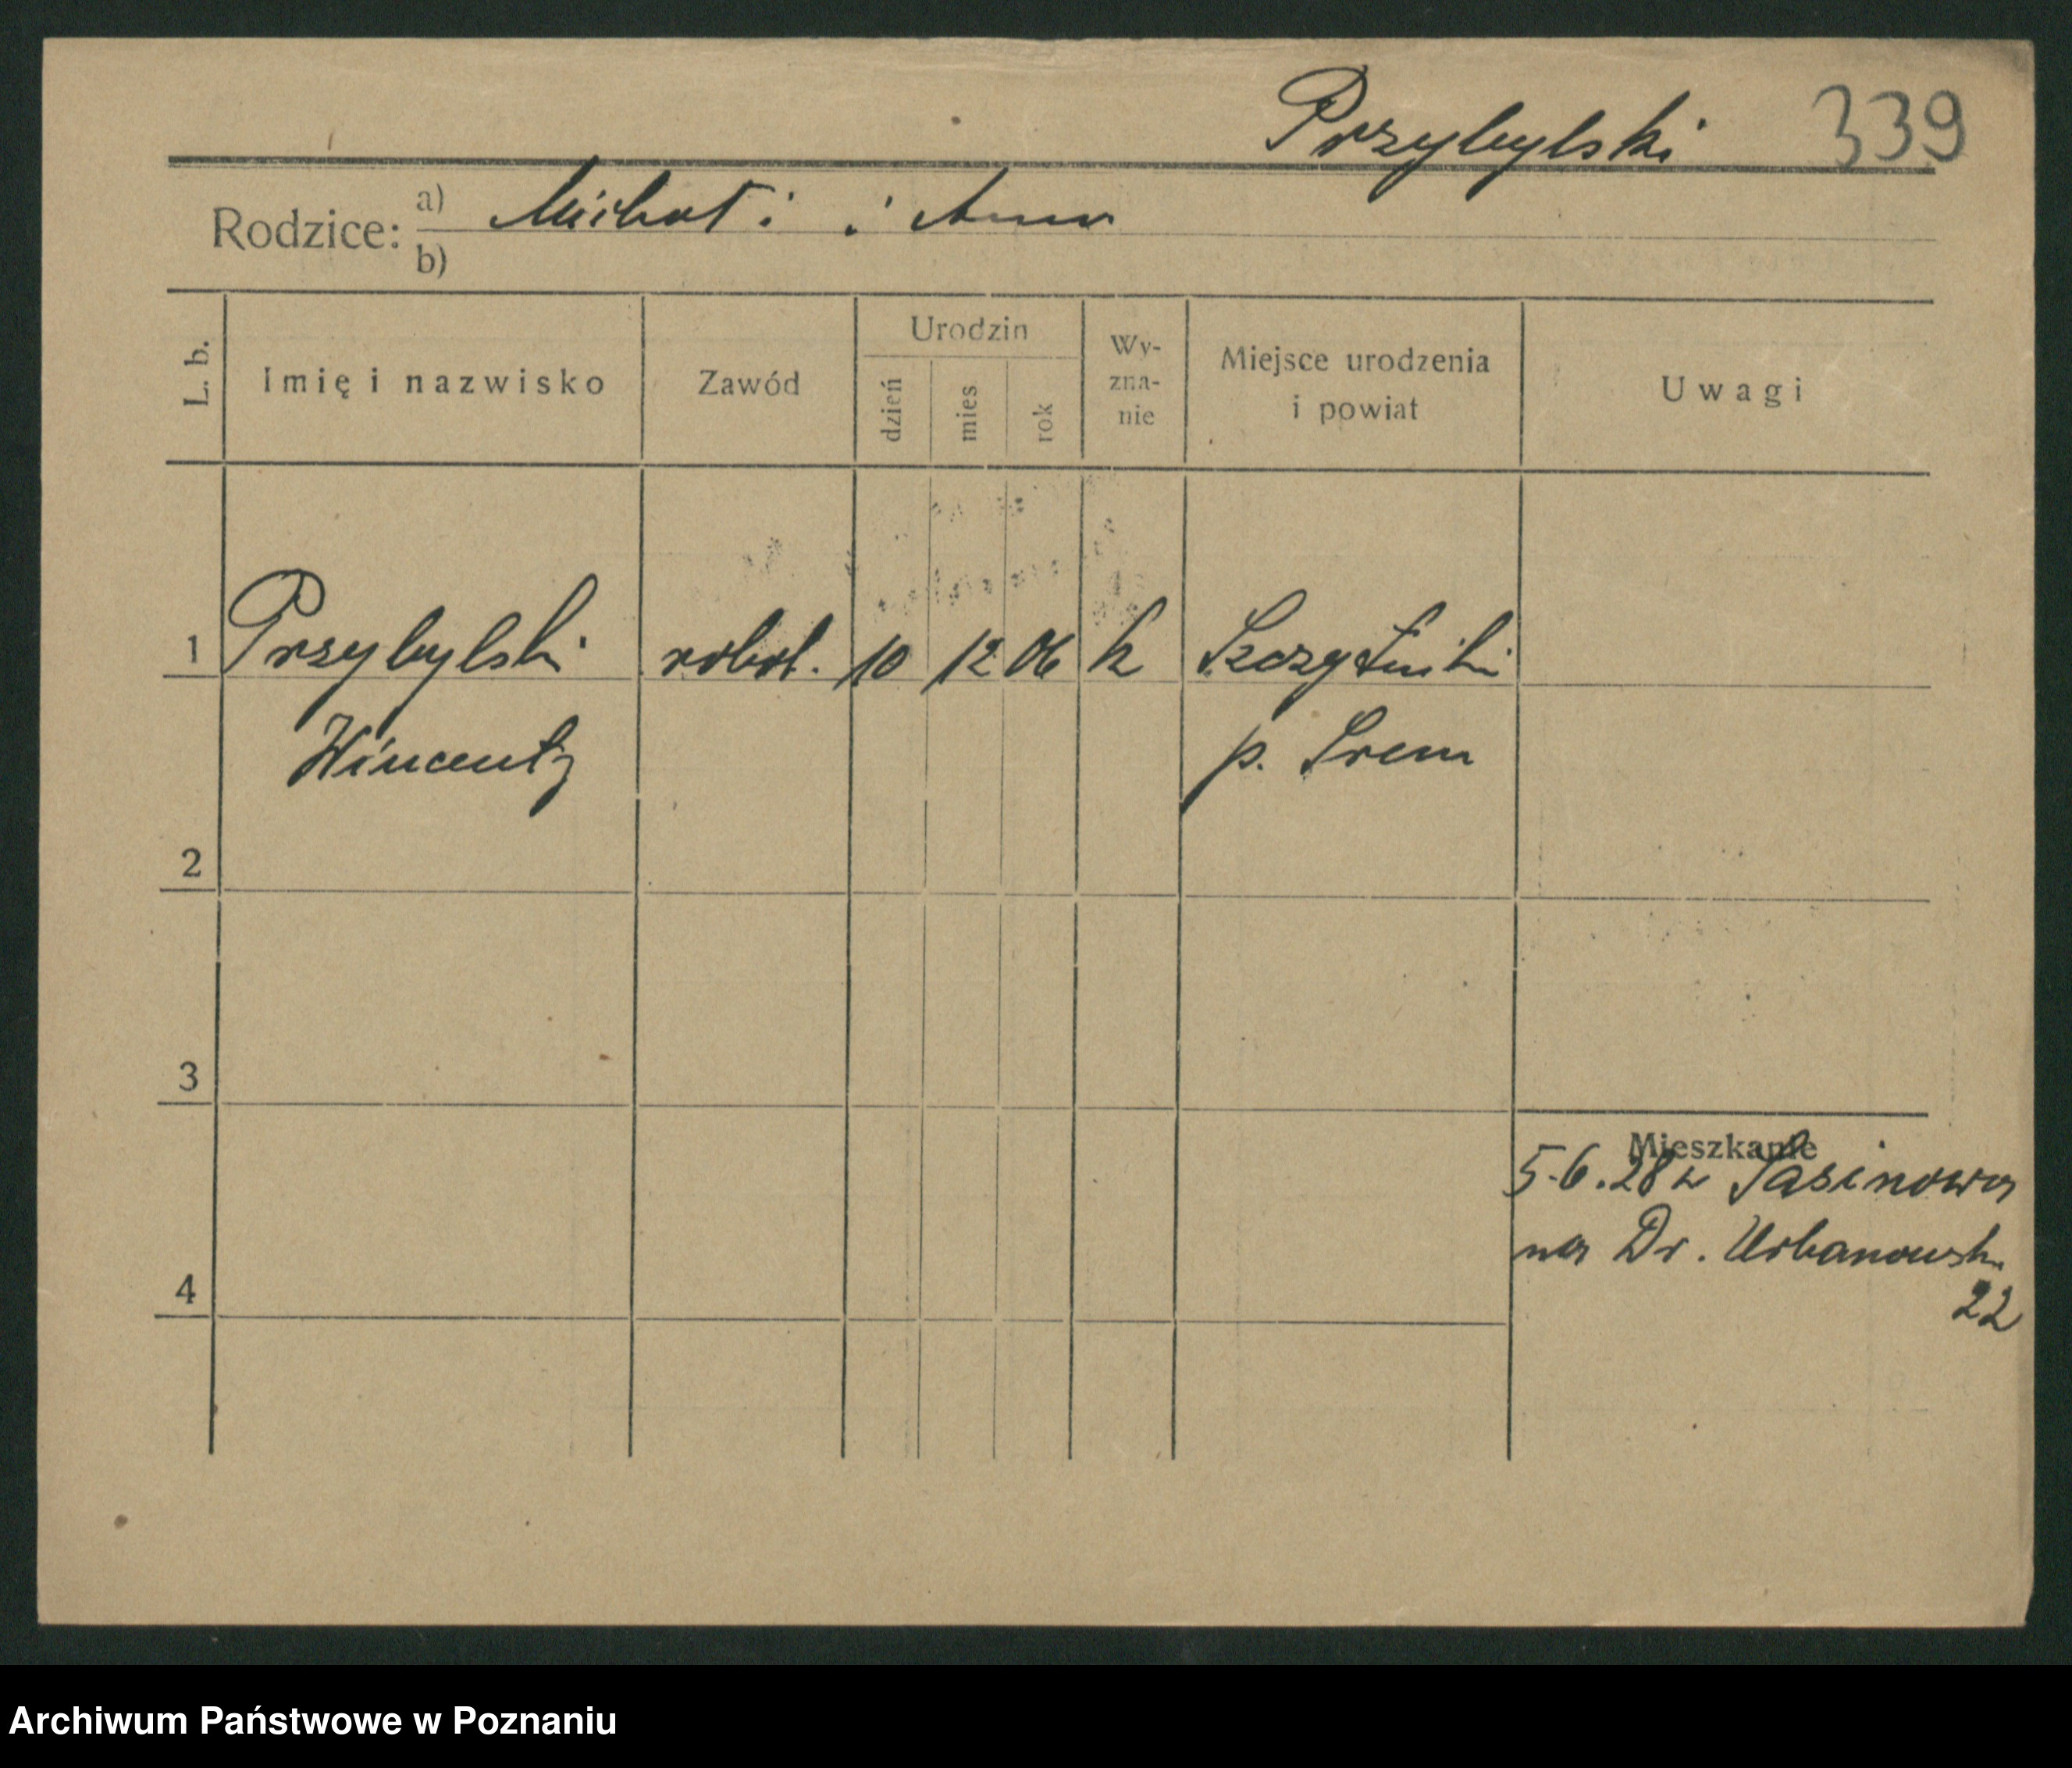 Przybylski 339
Rodzice: a) Michał i Anna
b)
L. b.
Imię i nazwisko
Zawód
Urodzin
dzień
mies
rok
Wy-
zna-
nie
Miejsce urodzenia
i powiat
Uwagi
1 Przybylski robot. 10 12 06 k Szczytniki
Wincenty p. Srem
2
3
Mieszkanie
5.6.28 w Sasinowa
na Dr. Urbanowska
22
4
Archiwum Państwowe w Poznaniu